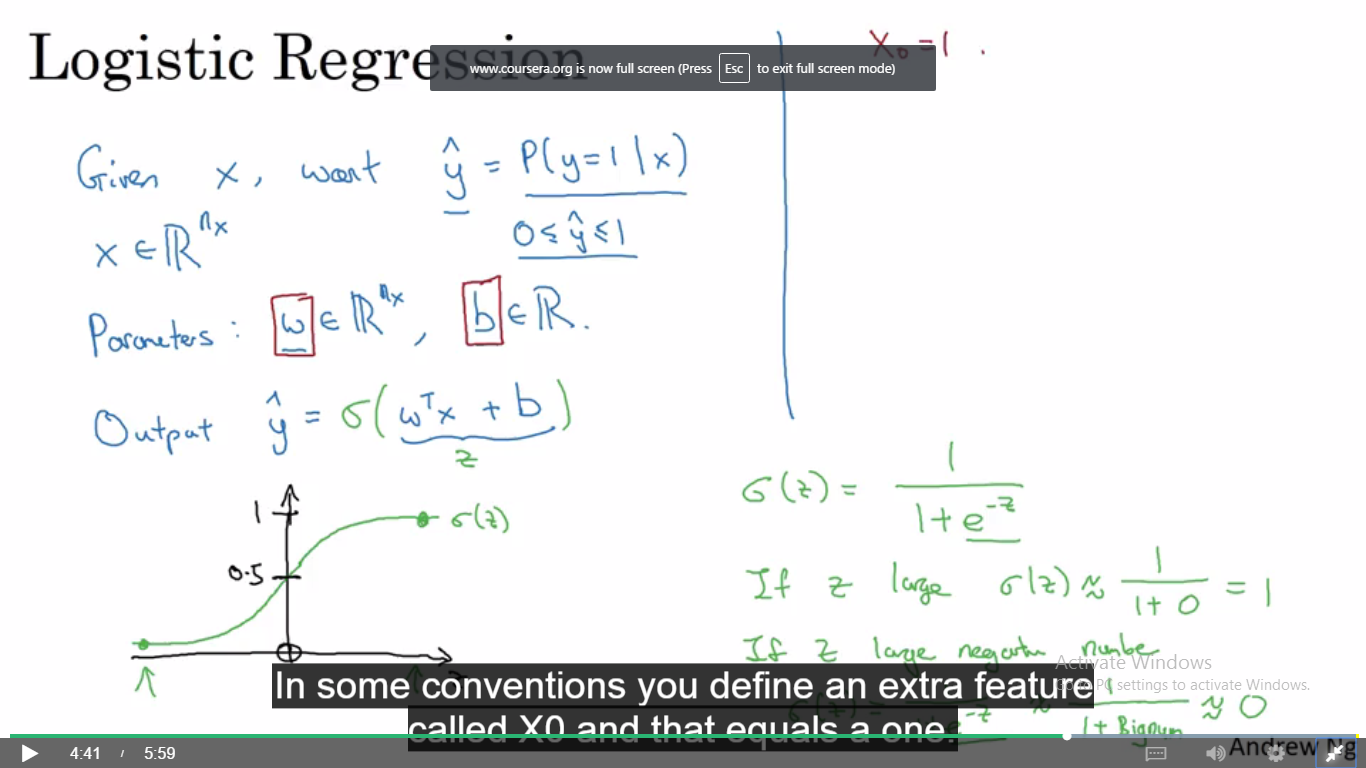 Logistic Regression
www.coursera.org is now full screen (Press Esc to exit full screen mode)
x₀ = 1 .
Given x, want ŷ = P(y=1|x)
x ∈ ℝⁿˣ
0 ≤ ŷ ≤ 1
Parameters: w ∈ ℝⁿˣ, b ∈ ℝ.
Output ŷ = σ(wᵀx + b)
z
1
σ(z)
0.5
σ(z) = 1 / (1 + e⁻ᶻ)
If z large σ(z) ≈ 1 / (1 + 0) = 1
If z large negative number
≈ 1 / (1 + Bignum) ≈ 0
Activate Windows
Go to PC settings to activate Windows.
In some conventions you define an extra feature
called X0 and that equals a one.
4:41 / 5:59
Andrew Ng